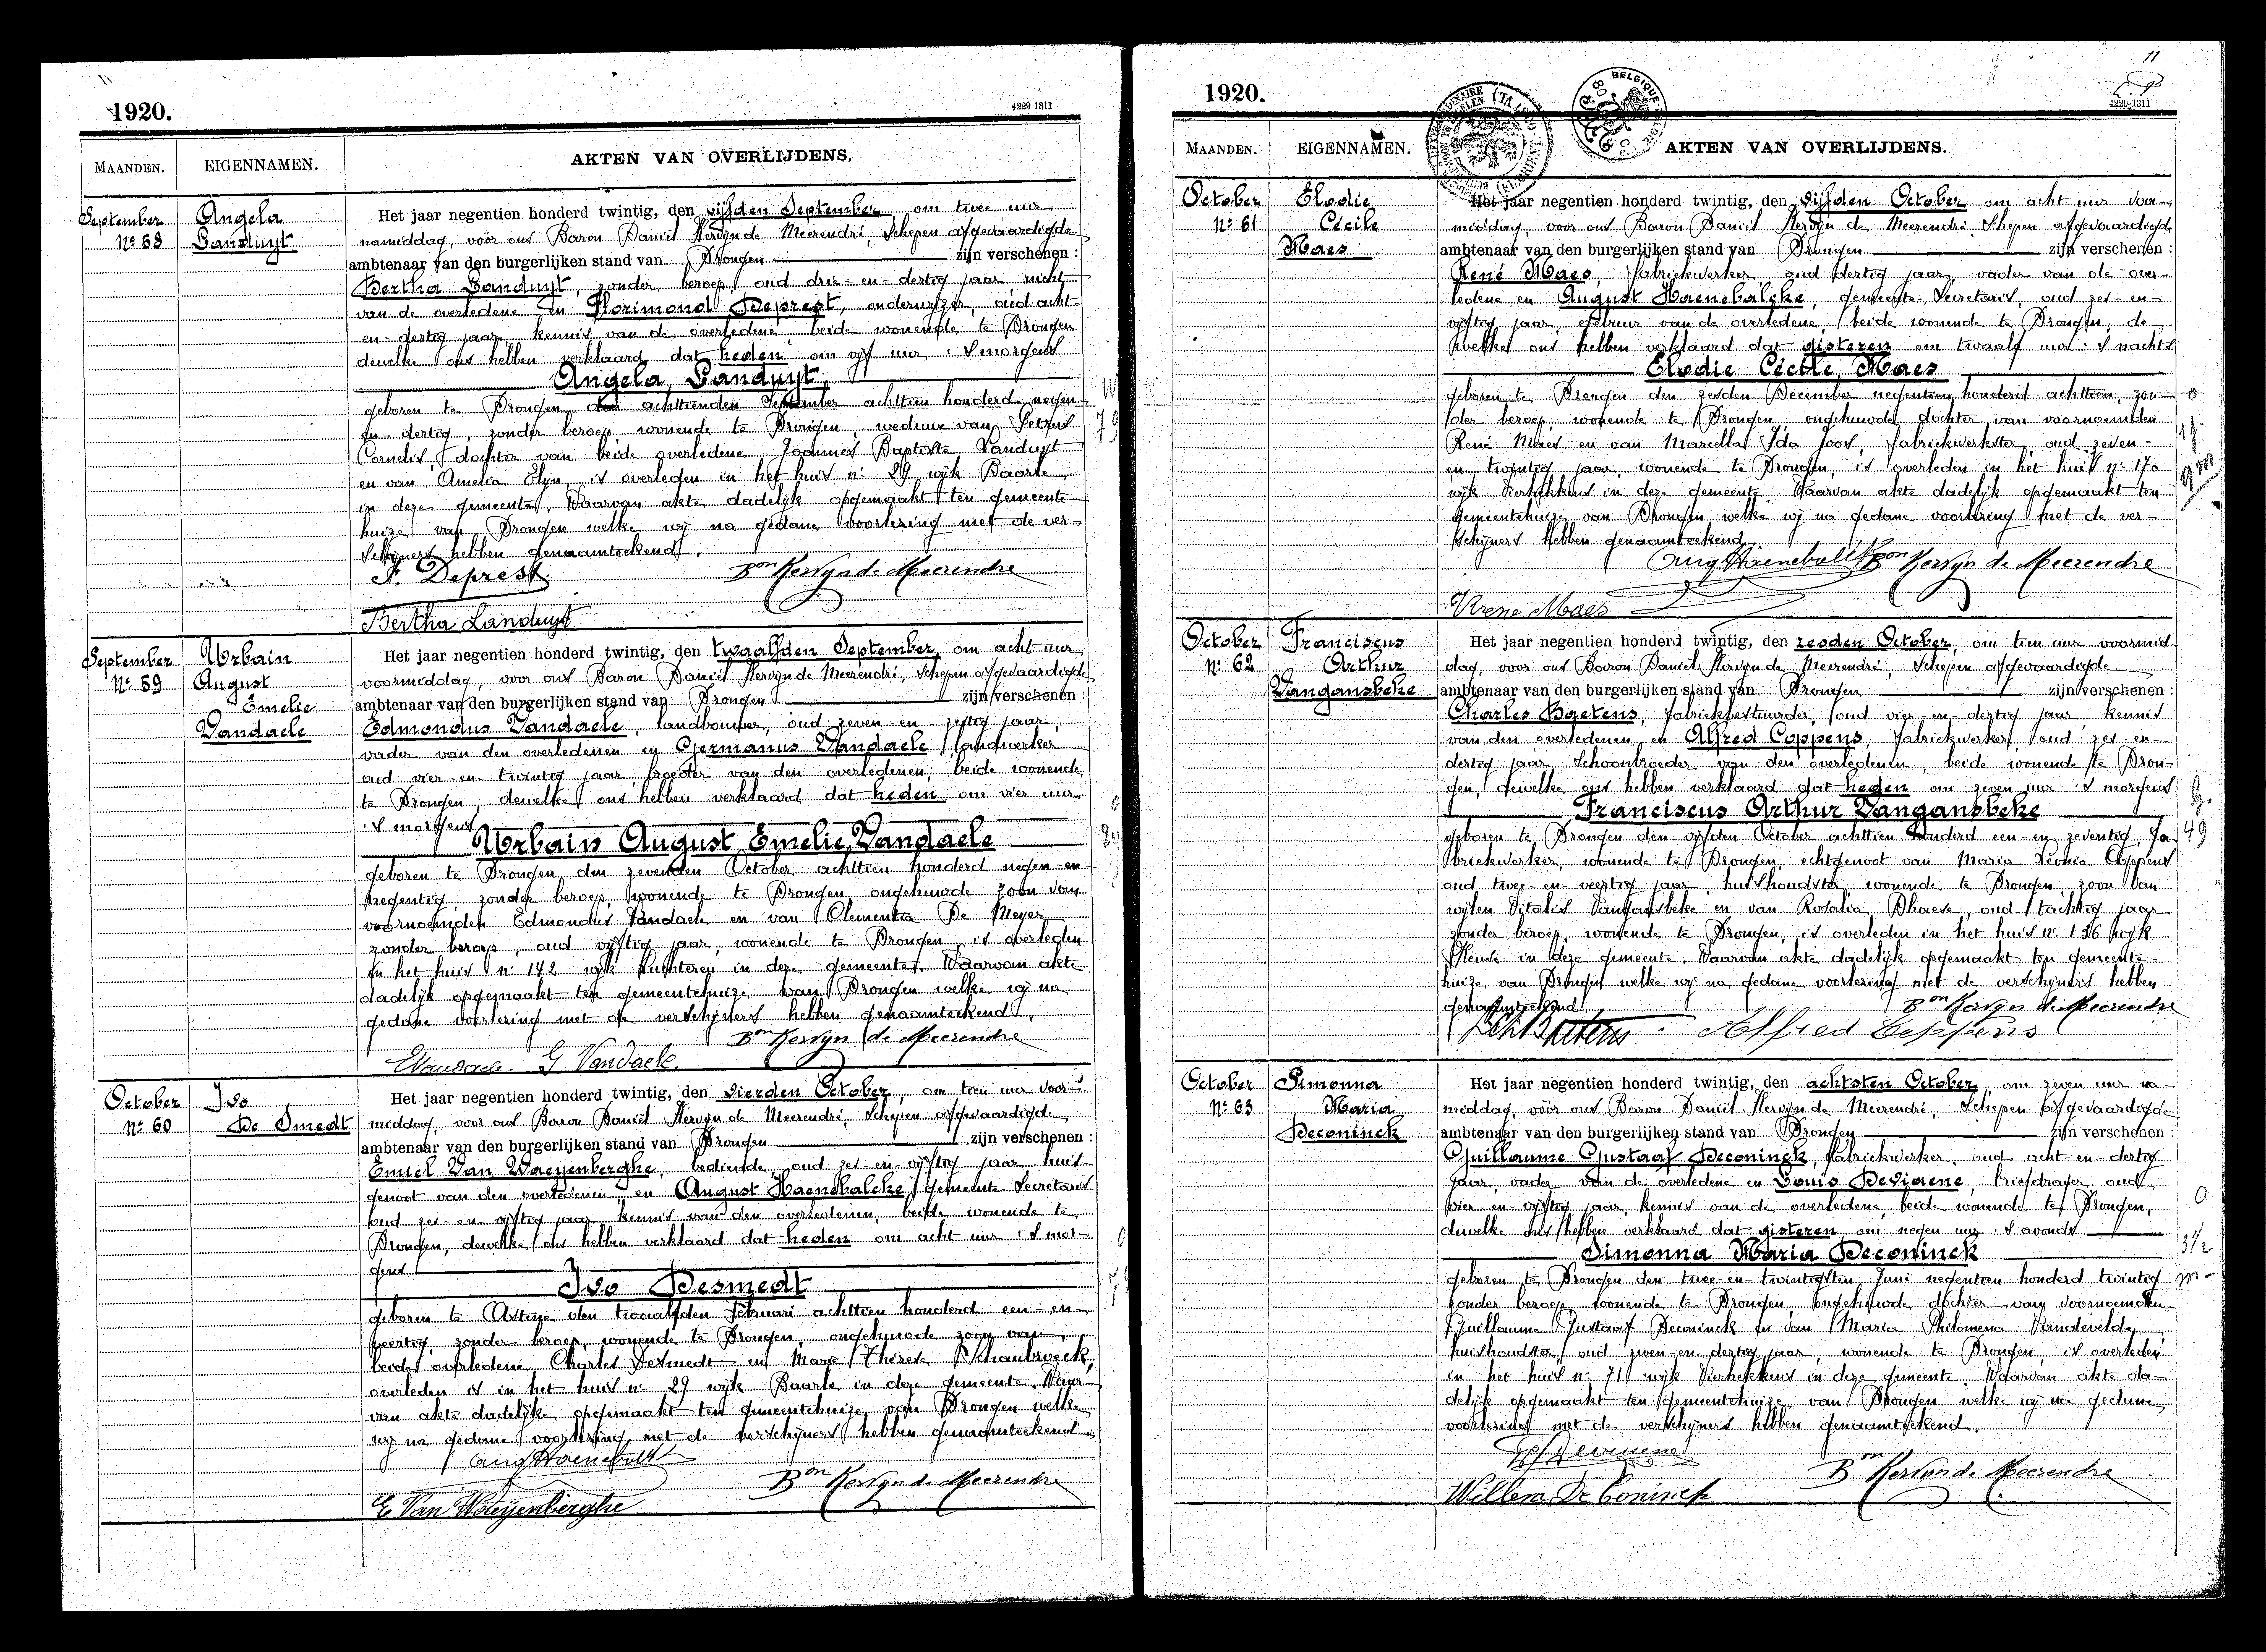 1920.
4229 1311
MAANDEN.
EIGENNAMEN.
AKTEN VAN OVERLIJDENS.
September
Nº 58
Angela
Landuyt
Het jaar negentien honderd twintig, den vijfden September, om twee uur
namiddag, voor ons Baron Daniël Kervyn de Meerendré, Schepen afgevaardigde
ambtenaar van den burgerlijken stand van Drongen zijn verschenen :
Bertha Landuyt, zonder beroep, oud drie-en-dertig jaar, nicht
van de overledene en Florimond Deprest, onderwijzer, oud acht-
en-dertig jaar, kennis van de overledene beide wonende te Drongen
dewelke ons hebben verklaard dat heden om vijf uur 's morgens
Angela Landuyt
geboren te Drongen, den achttienden September achttien honderd negen
en-dertig, zonder beroep, wonende te Drongen, weduwe van Petrus
Cornelis, dochter van beide overledene Joannes Baptiste Landuyt
en van Amelia Elyn, is overleden in het huis nº 29 wijk Baarle
in deze gemeente, Waarvan akte dadelijk opgemaakt ten gemeente-
huize van Drongen welke wij na gedane voorlezing met de ver-
schijners hebben genaamteekend.
F. Deprest
Bon Kervyn de Meerendre
Bertha Landuyt
September
Nº 59
Urbain
August
Emelie
Vandaele
Het jaar negentien honderd twintig, den twaalfden September, om acht uur
voormiddag, voor ons Baron Daniël Kervyn de Meerendré, Schepen afgevaardigde
ambtenaar van den burgerlijken stand van Drongen zijn verschenen :
Edmondus Vandaele, landbouwer, oud zeven en zestig jaar,
vader van den overledenen en Germanus Vandaele landwerker
oud vier en twintig jaar, broeder van den overledenen, beide wonende
te Drongen, dewelke ons hebben verklaard dat heden om vier uur
's morgens
Urbain August Emelie Vandaele
geboren te Drongen den zevenden October achttien honderd negen-en
negentig, zonder beroep, wonende te Drongen ongehuwde zoon van
voornoemden Edmondus Vandaele en van Clementia De Meyer
zonder beroep, oud vijftig jaar, wonende te Drongen, is overleden
in het huis nº 142 wijk Luchteren in deze gemeente. Waarvan akte
dadelijk opgemaakt ten gemeentehuize van Drongen welke wij na
gedane voorlezing met de verschijners hebben genaamteekend.
Bon Kervyn de Meerendre
G Vandaele
October
Nº 60
Ivo
De Smedt
Het jaar negentien honderd twintig, den vierden October, om tien uur voor-
middag, voor ons Baron Daniël Kervyn de Meerendré, Schepen afgevaardigde
ambtenaar van den burgerlijken stand van Drongen zijn verschenen :
Emiel Van Waeyenberghe, bediende, oud zes-en-vijftig jaar, huis-
genoot van den overledenen, en August Haenebalcke, gemeente Secretaris
oud zes-en-vijftig jaar kennis van den overledenen, beide wonende te
Drongen, dewelke ons hebben verklaard dat heden om acht uur 's mor-
gens
Ivo Desmedt
geboren te Astene den twaalfden Februari achttien honderd een-en-
veertig, zonder beroep, wonende te Drongen, ongehuwde zoon van
beide overledene, Charles Desmedt en Marie Thérese Schaubroeck,
overleden is in het huis nº 29 wijk Baarle in deze gemeente. Waar-
van akte dadelijk opgemaakt ten gemeentehuize van Drongen welke
wij na gedane voorlezing met de verschijners hebben genaamteekend.
Bon Kervyn de Meerendre
E Van Waeyenberghe
1920.
11
4229-1311
MAANDEN.
EIGENNAMEN.
AKTEN VAN OVERLIJDENS.
October
Nº 61
Elodie
Cécile
Maes
Het jaar negentien honderd twintig, den vijfden October om acht uur voor-
middag, voor ons Baron Daniël Kervyn de Meerendré, Schepen afgevaardigde
ambtenaar van den burgerlijken stand van Drongen zijn verschenen :
René Maes, fabriekwerker, oud dertig jaar, vader van de over-
ledene en August Haenebalcke, gemeente-Secretaris, oud zes-en-
vijftig jaar, gebuur van de overledene, beide wonende te Drongen, de-
welke ons hebben verklaard dat gisteren om twaalf uur 's nachts
Elodie Cécile Maes
geboren te Drongen den zesden December negentien honderd achttien, zon-
der beroep, wonende te Drongen, ongehuwde dochter van voornoemden
René Maes en van Marcella Ida Joos, fabriekwerkster, oud zeven-
en twintig jaar, wonende te Drongen, is overleden in het huis nº 170
wijk Vierhekkens in deze gemeente. Waarvan akte dadelijk opgemaakt ten
gemeentehuize van Drongen welke wij na gedane voorlezing met de ver-
schijners hebben genaamteekend.
Bon Kervyn de Meerendre
Rene Maes
October
Nº 62
Franciscus
Arthur
Vangansbeke
Het jaar negentien honderd twintig, den zesden October, om tien uur voormid-
dag, voor ons Baron Daniël Kervyn de Meerendré, Schepen afgevaardigde
ambtenaar van den burgerlijken stand van Drongen zijn verschenen :
Charles Baetens, fabriekbestuurder, oud vier-en-dertig jaar, kennis
van den overledenen en Alfred Coppens, fabriekwerker, oud zes-en-
dertig jaar, Schoonbroeder van den overledenen, beide wonende te Dron-
gen, dewelke ons hebben verklaard dat heden om zeven uur 's morgens
Franciscus Arthur Vangansbeke
geboren te Drongen den vijfden October achttien honderd een-en-zeventig, fa-
briekwerker, wonende te Drongen, echtgenoot van Maria Leonia Coppens
oud twee-en-veertig jaar, huishoudster, wonende te Drongen, zoon van
wijlen Vitalis Vangansbeke en van Rosalia Dhaese, oud tachtig jaar
zonder beroep, wonende te Drongen, is overleden in het huis nº 136 wijk
in deze gemeente. Waarvan akte dadelijk opgemaakt ten gemeente-
huize van Drongen welke wij na gedane voorlezing met de verschijners hebben
genaamteekend.
49
Bon Kervyn de Meerendre
Alfred Coppens
October
Nº 63
Simonna
Maria
Deconinck
Het jaar negentien honderd twintig, den achtsten October, om zeven uur na-
middag, voor ons Baron Daniël Kervyn de Meerendré, Schepen afgevaardigde
ambtenaar van den burgerlijken stand van Drongen zijn verschenen :
Guillaume Gustaaf Deconinck, fabriekwerker, oud acht-en-dertig
jaar, vader van de overledene en Louis Deviaene, briefdrager, oud
vier-en-vijftig jaar, kennis van de overledene, beide wonende te Drongen,
dewelke ons hebben verklaard dat gisteren om negen uur 's avonds
Simonna Maria Deconinck
geboren te Drongen den twee-en-twintigsten Juni negentien honderd twintig
zonder beroep, wonende te Drongen, ongehuwde dochter van voornoemden
Guillaume Gustaaf Deconinck en van Maria Philomena Vandevelde,
huishoudster, oud zeven-en-dertig jaar, wonende te Drongen, is overleden
in het huis nº 71 wijk Vierhekkens in deze gemeente. Waarvan akte da-
delijk opgemaakt ten gemeentehuize van Drongen welke wij na gedane
voorlezing met de verschijners hebben genaamteekend.
Bon Kervyn de Meerendre
Willem De Coninck